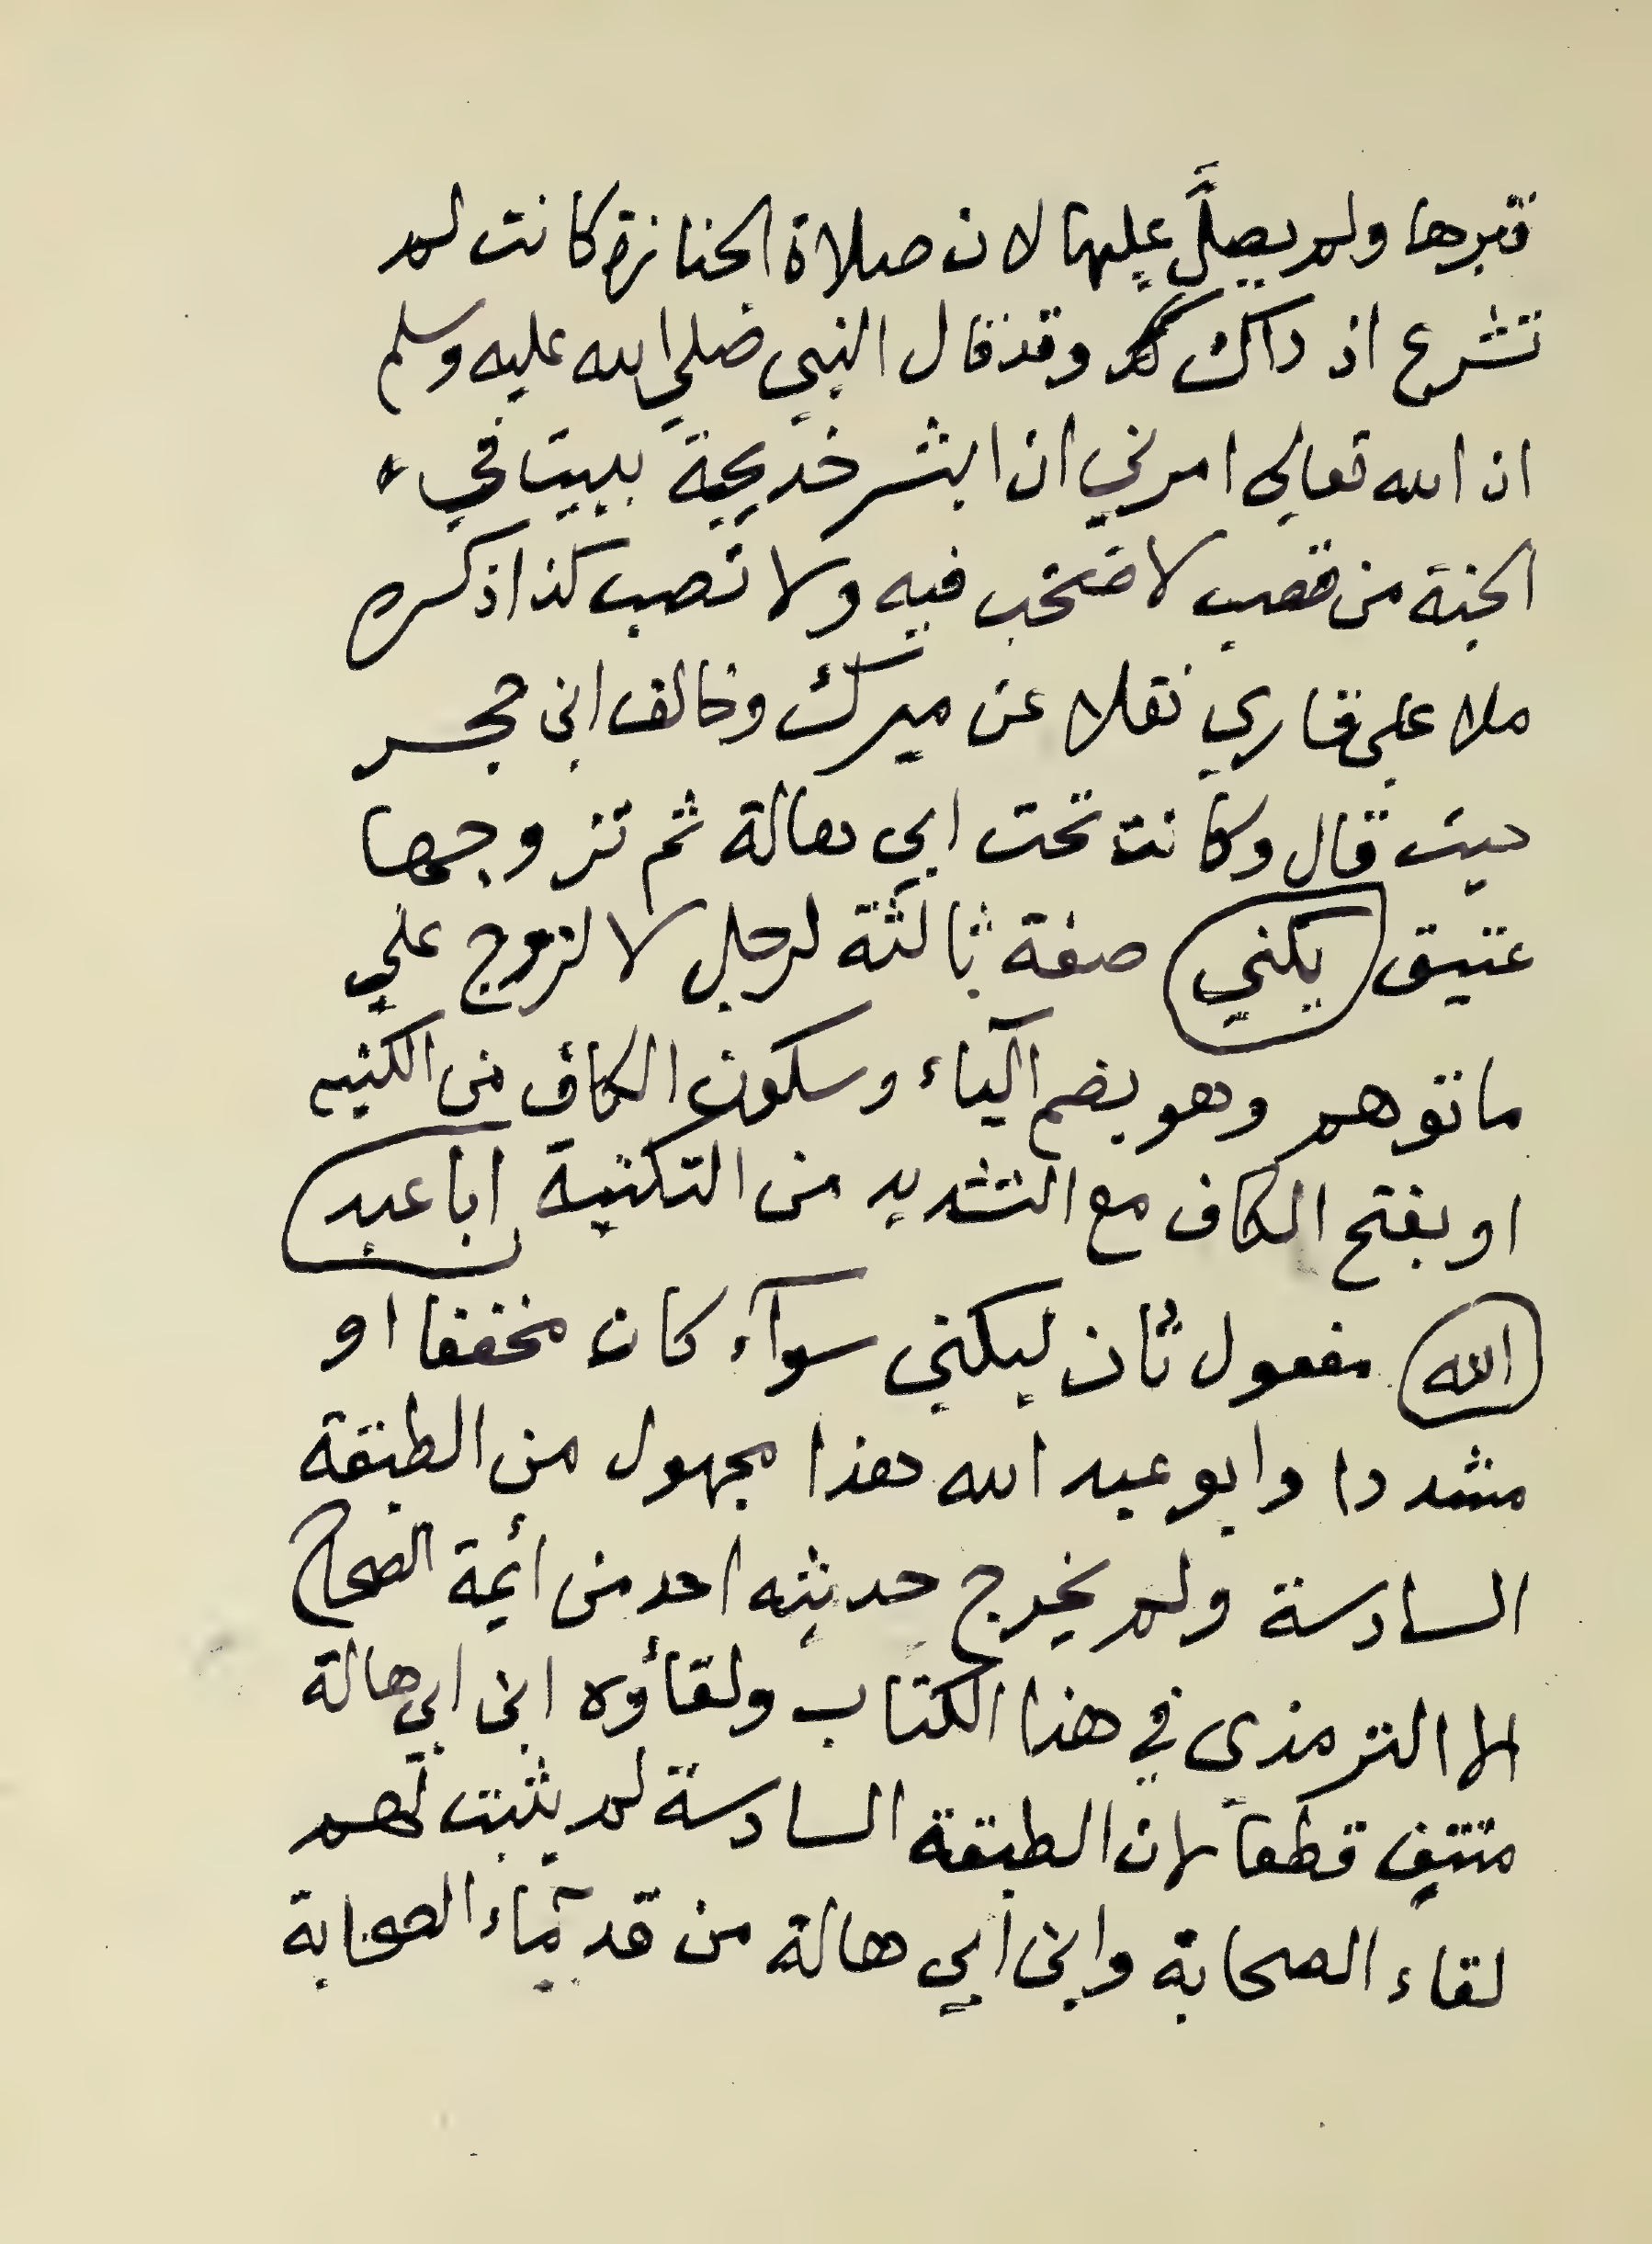 قبرها ولم يصلَّ عليها لان صلاة الجنازة كانت لم
تشرع اذ ذاك وقد قال النبي صلي الله عليه وسلم
ان الله تعالى امرني ان ابشر خديجة ببيت في
الجنة من قصب لا صخب فيه ولا نصب كذا ذكره
ملا على قاري نقلا عن ميرك وخالف ابن حجر
حيث قال وكانت تحت ابي هالة ثم تزوجها
عتيق يكني صفة ثالثة لرجل لا لزوج علي
ما توهم وهو بضم اليآء وسكون الكاف من الكنيه
او بفتح الكاف مع التشديد من التكنية ابا عبد
الله مفعول ثان ليكنى سوآء كان مخففا او
مشددا وابو عبد الله هذا مجهول من الطبقة
السادسة ولم يخرج حديثه احد من أئمة الصحاح
الا الترمذي في هذا الكتاب ولقاؤه ابن ابي هالة
منتف قطعا لان الطبقة السادسة لم يثبت لهم
لقاء الصحابة وابن ابي هالة من قدمآء الصحابة